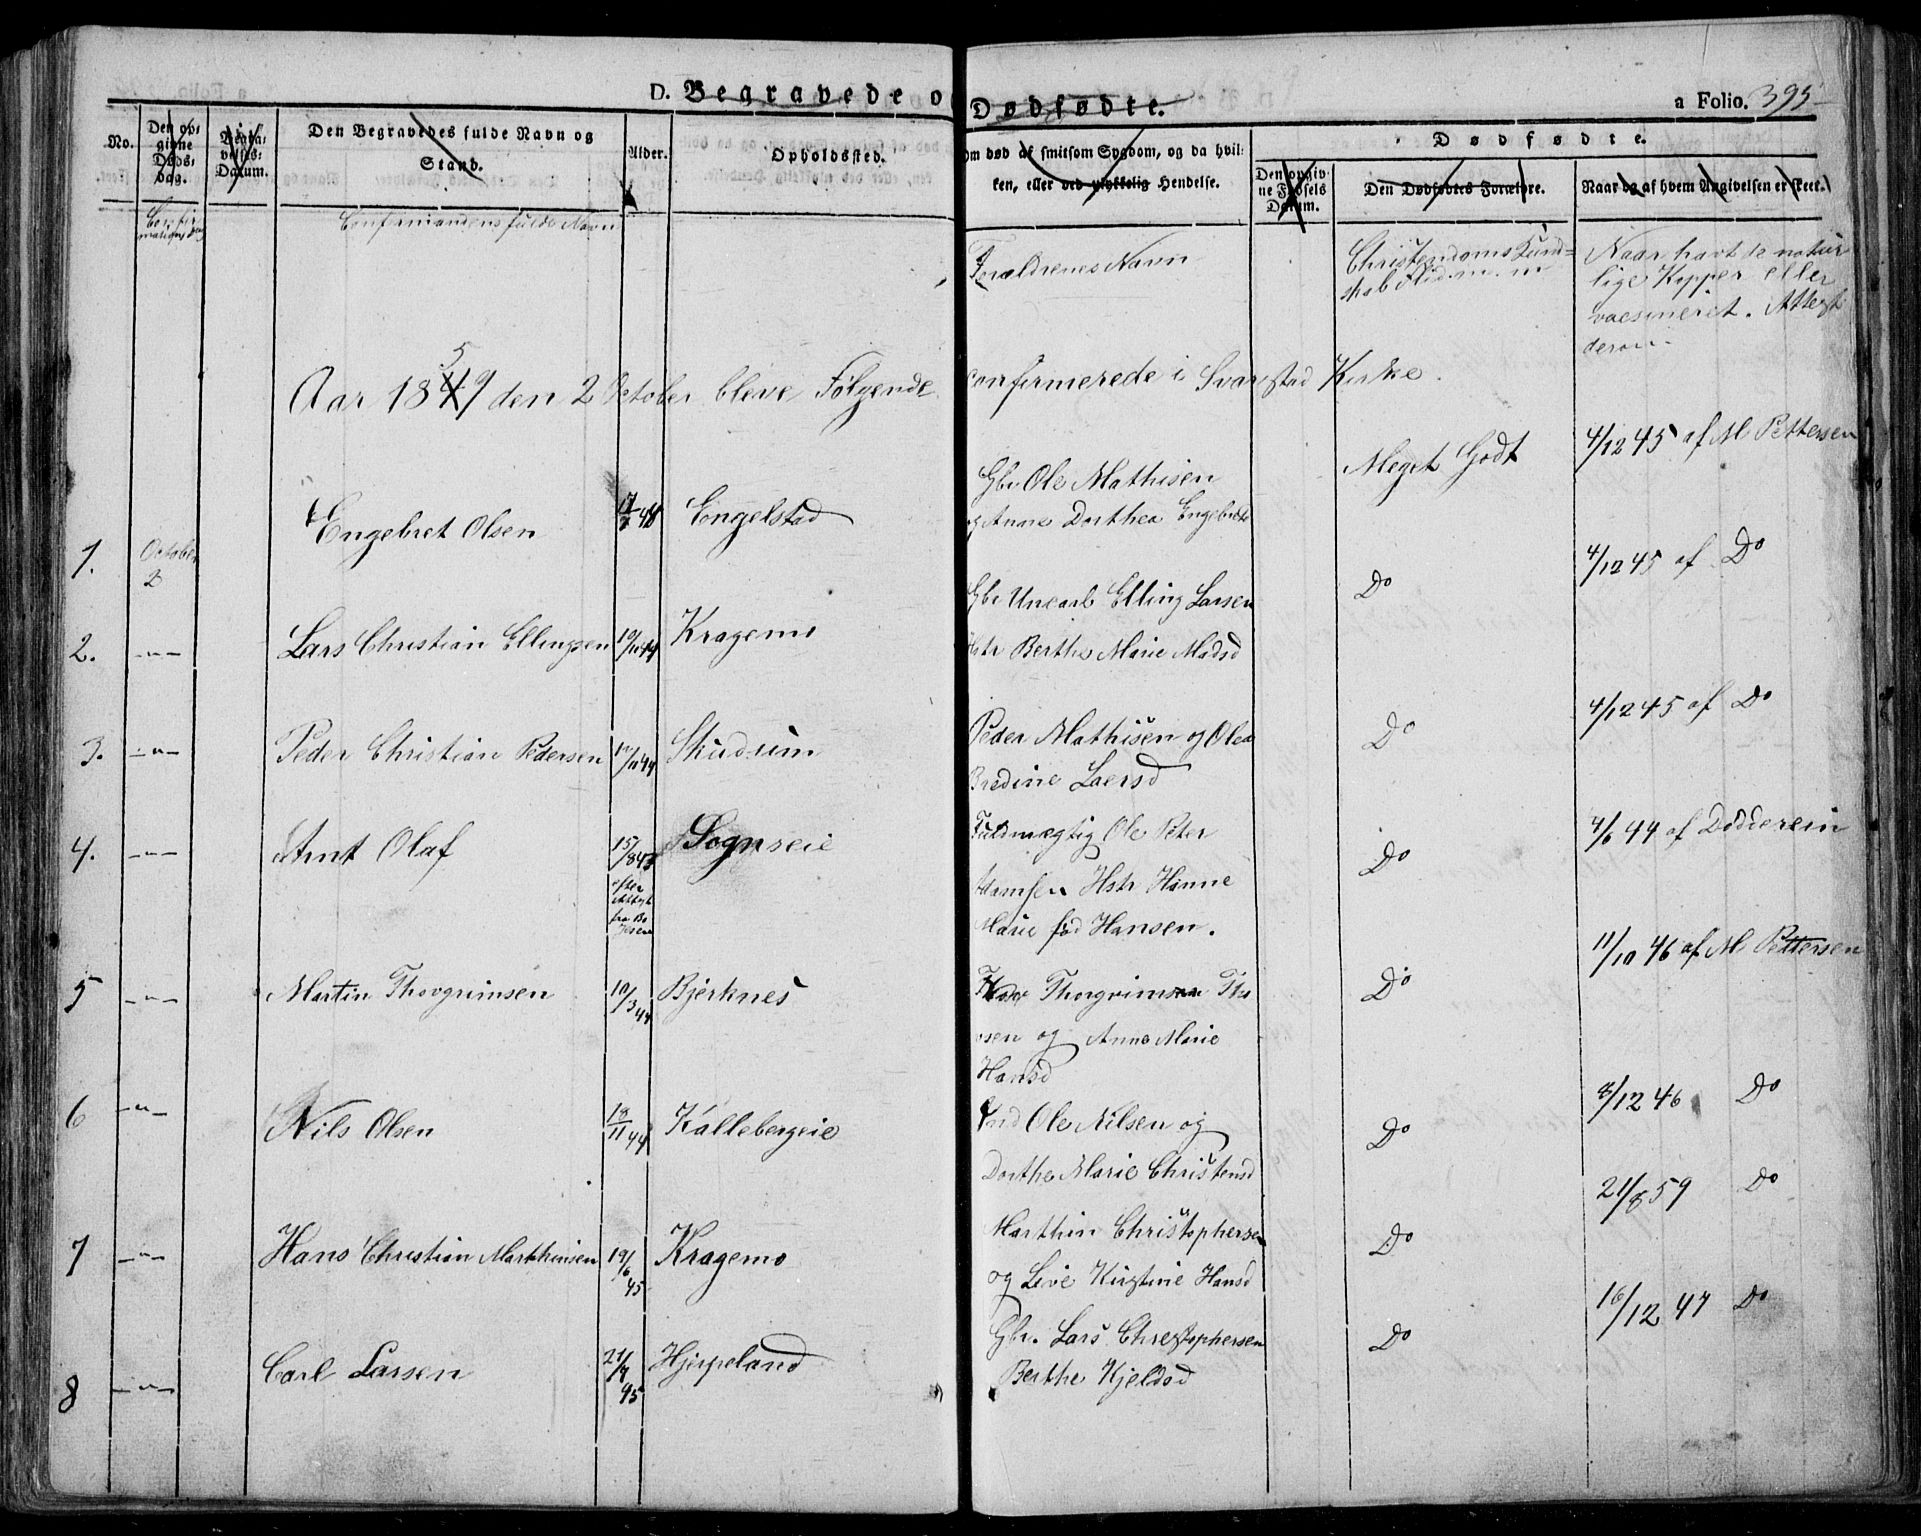 D. Begravede o Dødfødte.
a Folio. 395
No.
Den op-
givne
Døds-
dag.
Begra-
velses-
Datum.
Den Begravedes fulde Navn og
Stand.
Alder.
Opholdssted.
Om død af smitsom Sygdom, og da hvil-
ken, eller ved ulykkelig Hendelse.
Dødfødte.
Den opgiv-
ne Fødsels
Datum.
Den Dødfødtes Forældre.
Naar og af hvem Angivelsen er skeet.
Confir
mations Dag
Confirmandens fulde Navn
Forældrenes Navn
Christendoms Kund=
skab Flid m. m
Naar havt de natur
lige Kopper eller
vacsineret. Attest
derom.
5
Aar 1849 den 2 October bleve Følgende confirmerede i Svarstad Kirke.
1.
October
2
Engebret Olsen
Engelstad
Gbr Ole Mathisen
og Anne Dorthea Engebrets
Meget Godt
4/12 45 af M Pettersen
2.
-"-
Lars Christian Ellingsen
19/10 44
Kragemo
Gbr Uncarl Elling Larsen
Hstr Berthe Marie Madsd
Do
4/12 45 af Do
3.
-"-
Peder Christian Pedersen
Skudsum
Peder Mathisen og Olea
Bredine Laersd
Do
4/12 45 af Do
4.
-"-
Arnt Olaf
15/8 43
efter
Attest
fra
Sognseie
Fuldmægtig Ole Peter
Adamsen Hstr Hanne
Marie fød Hansen.
Do
4/6 44 af Dødderein
5
-"-
Martin Thorgrimsen
10/3 44
Bjerknes
Thorgrimsen
og Anne Marie
Hansd
Do
11/10 46 af M Pettersen
6
-"-
Nils Olsen
18/11 44
Kallebergeie
Ind Ole Nilsen og
Dorthe Marie Christensd
Do
8/12 46 Do
7
-"-
Hans Christian Marthinsen
19/6
45
Kragemo
Marthin Christophersen
og Live Kirstine Hansd
Do
21/8 59 Do
8
-"-
Carl Larsen
21/7
45
Hjerpeland
Gbr. Lars Christophersen
Berthe Kjeldsd
Do
16/12 47 Do